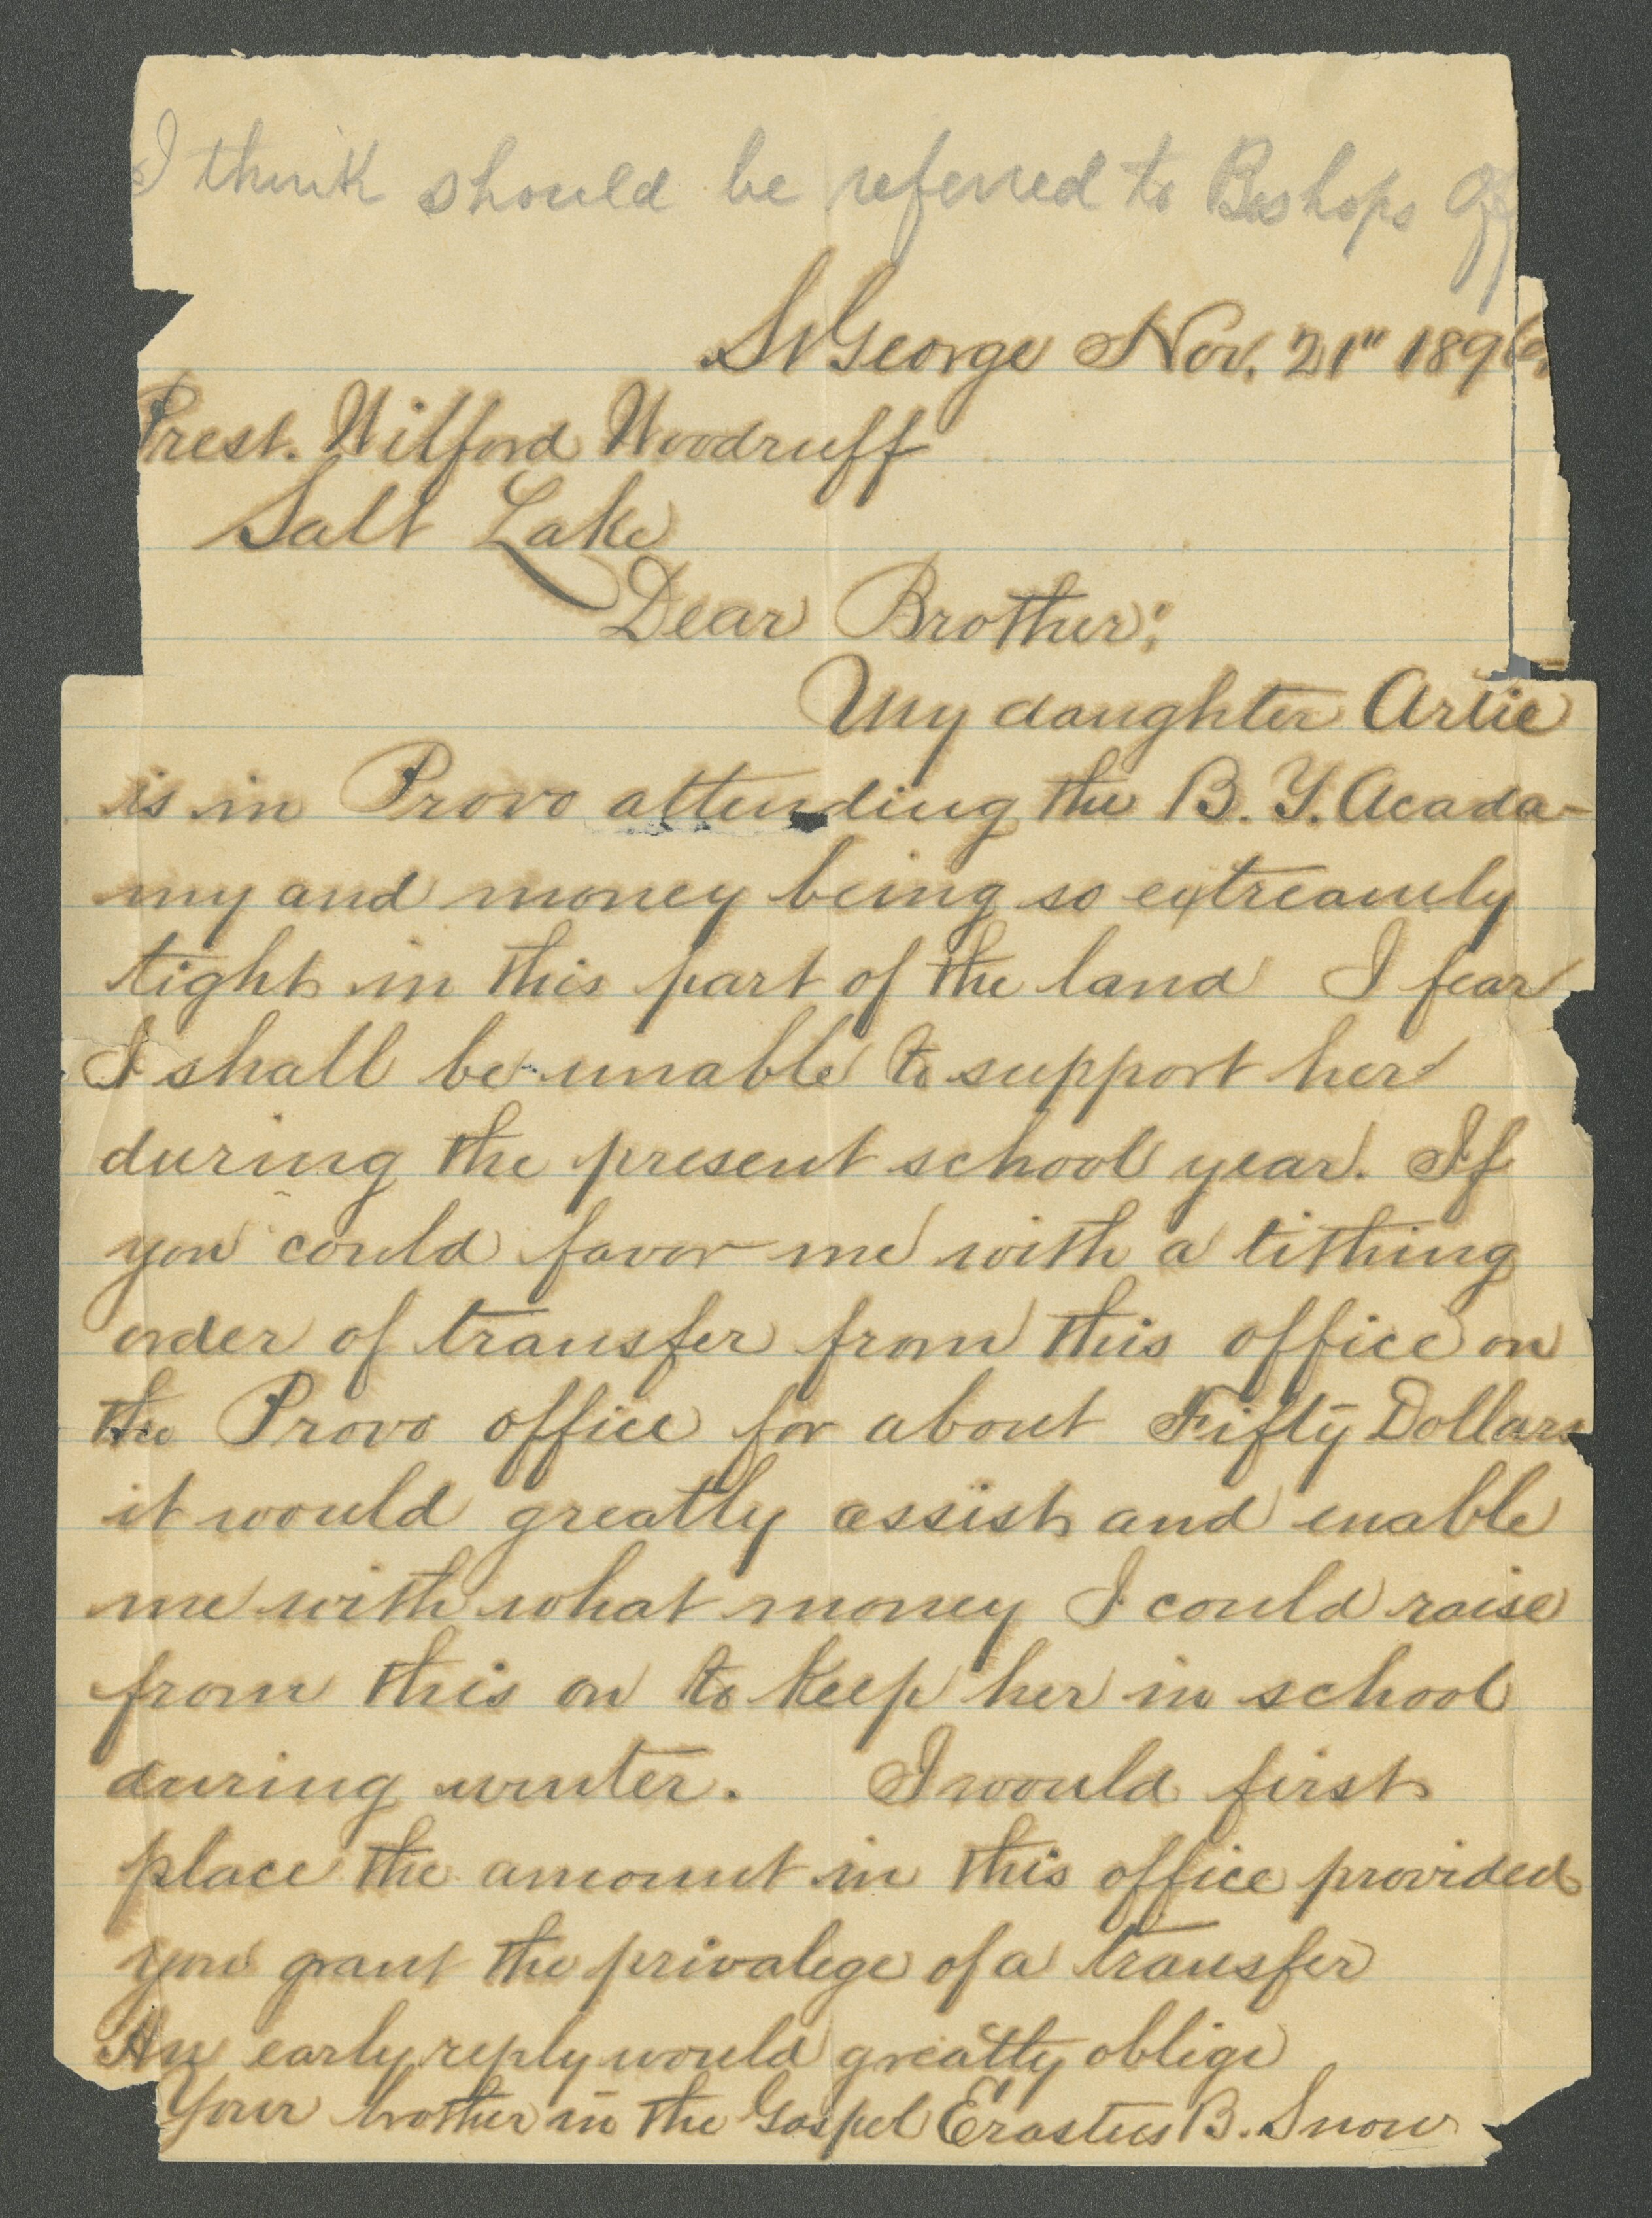 I think should be referred to Bishops Off
St George Nov. 21" 1896,
Prest. Wilford Woodruff
Salt Lake
Dear Brother;
My daughter Artie
is in Provo attending the B. Y. Acada-
my and money being so extreamly
tight in this part of the land I fear
I shall be unable to support her
during the present school year. If
you could favor me with a tithing
order of transfer from this office on
the Provo office for about Fifty Dollars
it would greatly assist and enable
me with what money I could raise
from this on to keep her in school
during winter. I would first
place the amount in this office provided
you grant the privalege of a transfer
An early reply would greatly oblige
Your brother in the Gospel Erastus B. Snow